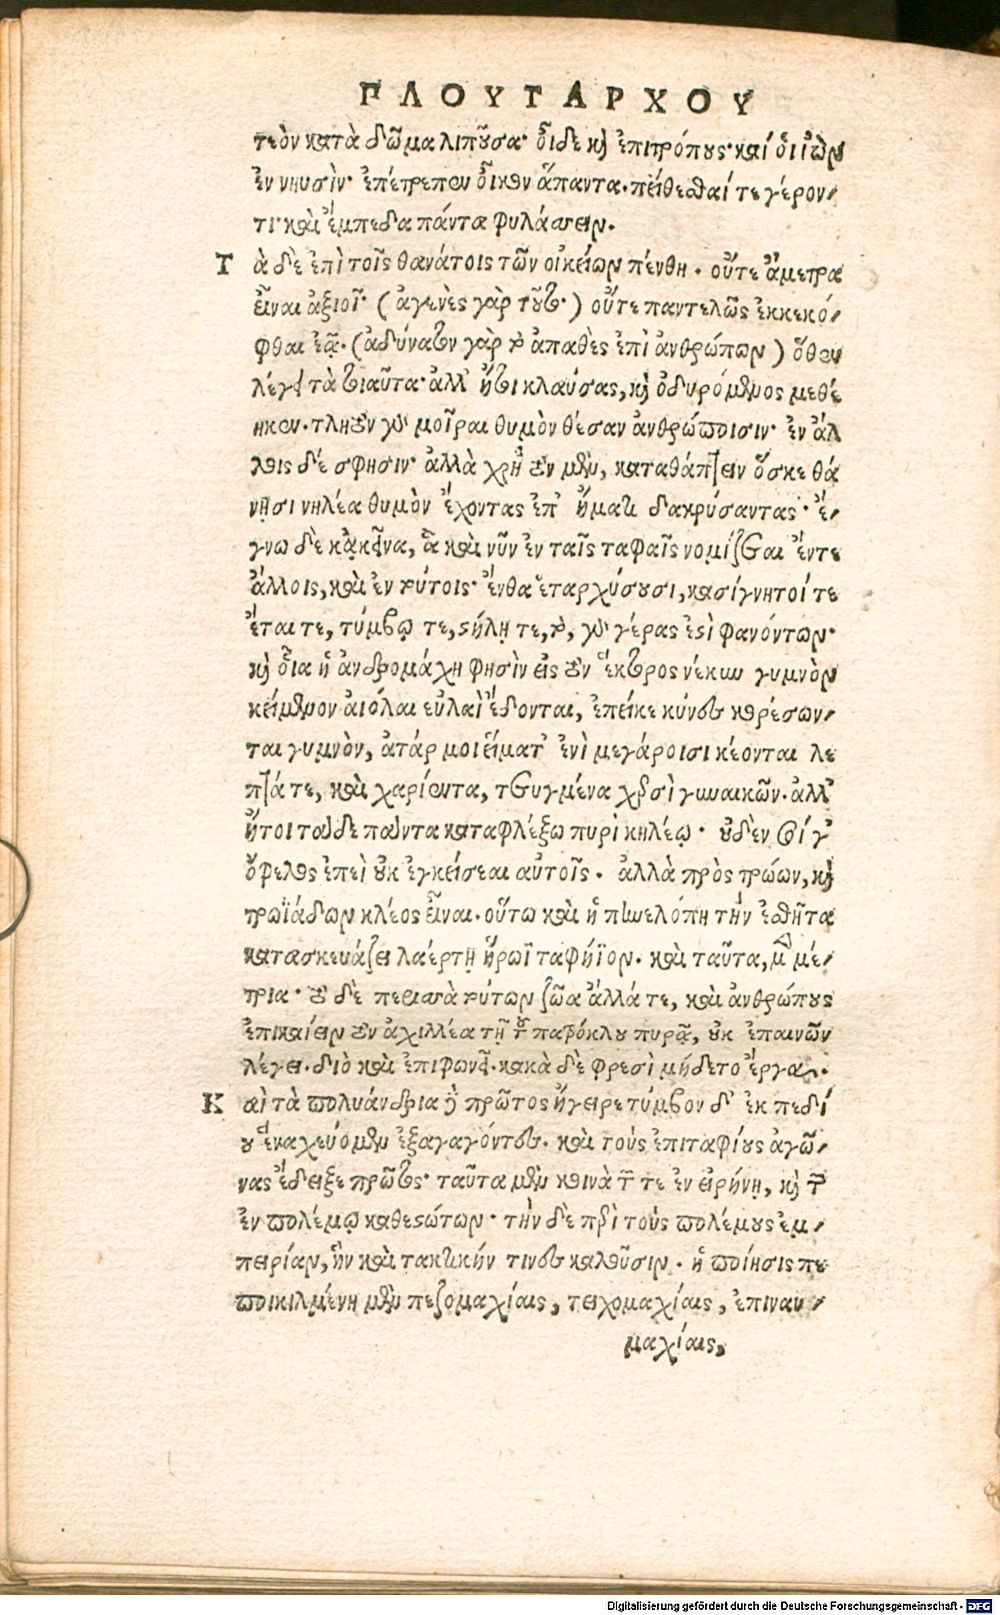 ΠΛΟΥΤΑΡΧΟΥ
τεὸν κατὰ δῶμα λιποῦσα· οἶδε καὶ ἐπιτρόπους· καί οἱ ἰὼν
ἐν νηυσὶν· ἐπέτρεπεν οἶκον ἅπαντα. πείθεσθαί τε γέρον-
τι· καὶ ἔμπεδα πάντα φυλάσσειν.
Τὰ δὲ ἐπὶ τοῖς θανάτοις τῶν οἰκείων πένθη. οὔτε ἄμετρα
εἶναι ἀξιοῖ· (ἀγενὲς γὰρ τοῦτο·) οὔτε παντελῶς ἐκκεκό-
φθαι ἐᾷ. (ἀδύνατον γὰρ τὸ ἀπαθὲς ἐπὶ ἀνθρώπων) ὅθεν
λέγει τὰ τοιαῦτα· ἀλλ' ἤτοι κλαύσας, καὶ ὀδυρόμενος μεθέ
ηκεν. τλητὸν γὰρ μοῖραι θυμὸν θέσαν ἀνθρώποισιν· ἐν ἄλ
λοις δέ σφησιν· ἀλλὰ χρὴ τὸν μὲν, καταθάπτειν ὅσκε θά
νῃσι νηλέα θυμὸν ἔχοντας ἐπ' ἤματι δακρύσαντας· ἔ-
γνω δὲ κἀκεῖνα, ἃ καὶ νῦν ἐν ταῖς ταφαῖς νομίζεται ἔντε
ἄλλοις, καὶ ἐν τούτοις· ἔνθα ἑταρχύσουσι, κασίγνητοί τε
ἔται τε, τύμβῳ τε, στήλῃ τε, τὸ, γὰρ γέρας ἐστὶ φανόντων·
καὶ οἷα ἡ ἀνδρομάχη φησὶν εἰς τὸν ἕκτορος νέκυν γυμνὸν
κείμενον αἰόλαι εὐλαὶ ἔδονται, ἐπείκε κύνες κορέσων-
ται γυμνὸν, ἀτάρ μοι εἵματ' ἐνὶ μεγάροισι κέονται λε
πτά τε, καὶ χαρίεντα, τετυγμένα χερσὶ γυναικῶν. ἀλλ'
ἤτοι τάδε πάντα καταφλέξω πυρὶ κηλέῳ· οὐδὲν σοί γ'
ὄφελος ἐπεὶ οὐκ ἐγκείσεαι αὐτοῖς. ἀλλὰ πρὸς τρώων, καὶ
τρωϊάδων κλέος εἶναι. οὕτω καὶ ἡ πηνελόπη τὴν ἐσθῆτα
κατασκευάζει λαέρτῃ ἥρωϊ ταφήϊον. καὶ ταῦτα, μὲν μέ-
τρια· τὸ δὲ περισσὰ τούτων ζῶα ἄλλά τε, καὶ ἀνθρώπους
ἐπικαίειν τὸν ἀχιλλέα τῇ τοῦ πατρόκλου πυρᾷ, οὐκ ἐπαινῶν
λέγει. διὸ καὶ ἐπιφωνεῖ. κακὰ δὲ φρεσὶ μήδετο ἔργα.
Καὶ τὰ πολυάνδρια πρῶτος ἤγειρε τύμβον δ' ἐκ πεδί
ου ἕνα χεύομεν ἐξαγαγόντες. καὶ τοὺς ἐπιταφίους ἀγῶ-
νας ἔδειξε πρῶτος· ταῦτα μὲν κοινὰ τῶν τε ἐν εἰρήνῃ, καὶ τῶν
ἐν πολέμῳ καθεστώτων· τὴν δὲ περὶ τοὺς πολέμους ἐμ-
πειρίαν, ἣν καὶ τακτικήν τινες καλοῦσιν. ἡ ποίησις πε
ποικιλμένη μὲν πεζομαχίαις, τειχομαχίαις, ἐπιναυ-
μαχίαις,
Digitalisierung gefördert durch die Deutsche Forschungsgemeinschaft - DFG